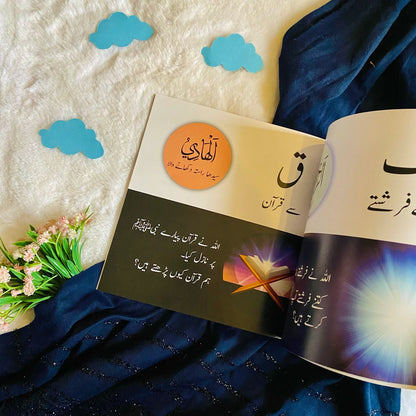 اَلْهَادِيُ
سیدھا راستہ دکھانے والا
ق
سے قرآن
اللہ نے قرآن پیارے نبی ﷺ
پر نازل کیا۔
ہم قرآن کیوں پڑھتے ہیں؟
فرشتے
اللہ نے
کتنے فرشتے
کرتے ہیں؟